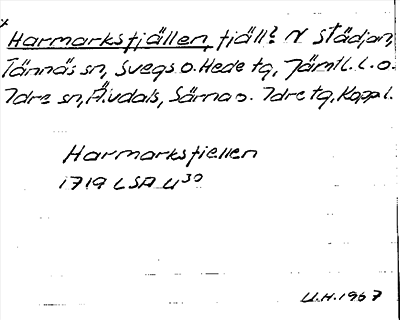 x
Harmarksfjällen, fjäll? N Städjan,
Tännäs sn, Svegs o. Hede tg, Jämtl. l. o.
Idre sn, Älvdals, Särna o. Idre tg, Kopp. l.
Harmarksfiellen
1719 LSA U30
U.H. 1967